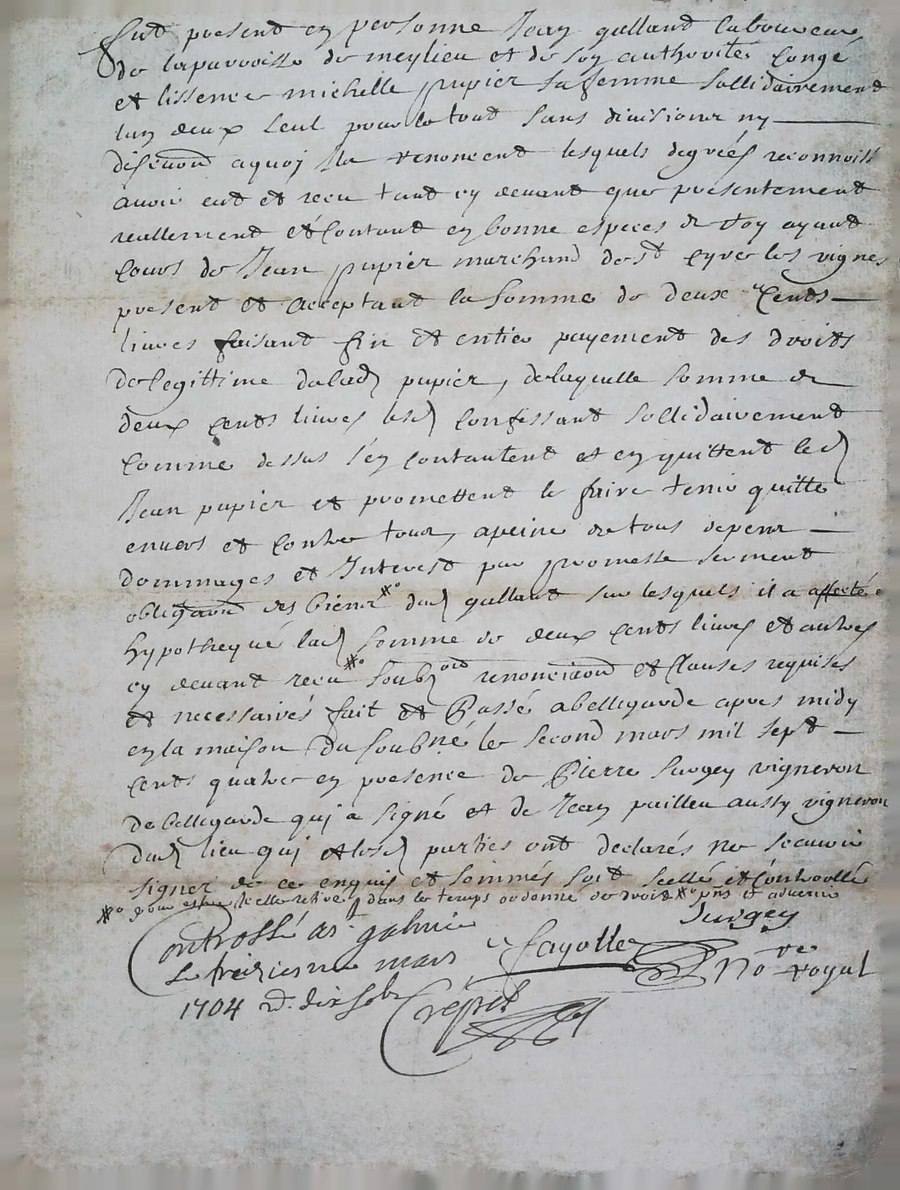 fut present en personne Jean galland laboureur
de laparroisse de meylieu et de soy authorité congé
et lissence michelle papier sa femme sollidairement
lun deux seul pour le tout sans divisioner ny
a quoy renoncent lesquels degrées
avoir eut et receu tant cy devant que presentement
reallement et contant en bonne especes ayant
cours de Jean papier marchand de st Cyre les vignes
present et acceptant la somme de deux cents
livres faisant fin et entier payement des droits
de legittime delad papier, de laquelle somme de
deux cents livres lesd confessant sollidairement
comme dessus s'en contantent et en quittent led
Jean papier et promettent le faire tenir quitte
envers et contre tous, apeine de tous depens
dommages et Interest par promesse serment
obligaon des biens #o dud galland sur lesquels il a affecté
hypothequé lad somme de deux cents livres et autres
cy devant receu #o soubz renonciaon et clauses requises
et necessaires fait et Passé abellegarde apres midy
en la maison du soubné le second mars mil sept
cents quatre en presence de Pierre Surgey vigneron
de bellegarde qui a signé et de Jean pailleu aussy vigneron
dud lieu qui et lesd parties ont declarés ne scavoir
signer de ce enquis et sommés soit scellé et controollé
#o pour estre icelle dans le temps ordonné de droit #o pns et advenir
Surgey
Controllé a st galmie
le treiziesme mars
1704 R. dix sols
fayolle
No re royal
Crépet